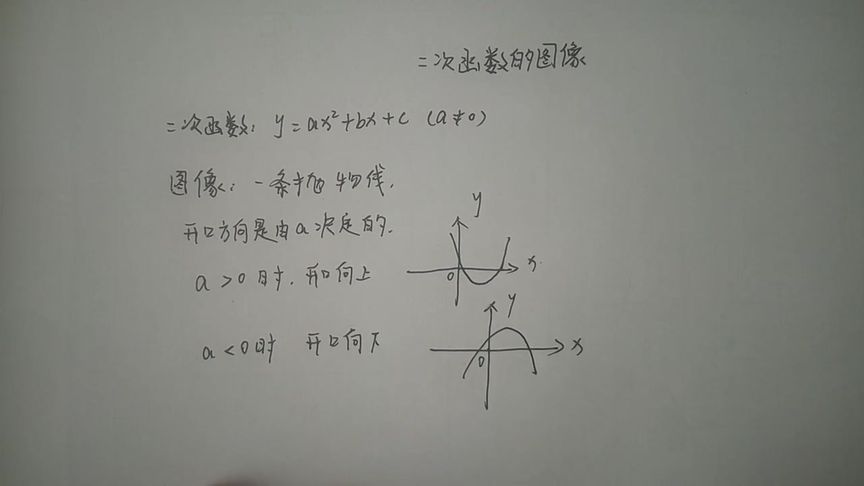 二次函数的图像
二次函数: y=ax²+bx+c (a≠0)
图像: 一条抛物线.
开口方向是由a决定的.
a>0时. 开口向上
y
x
0
a<0时 开口向下
y
x
0